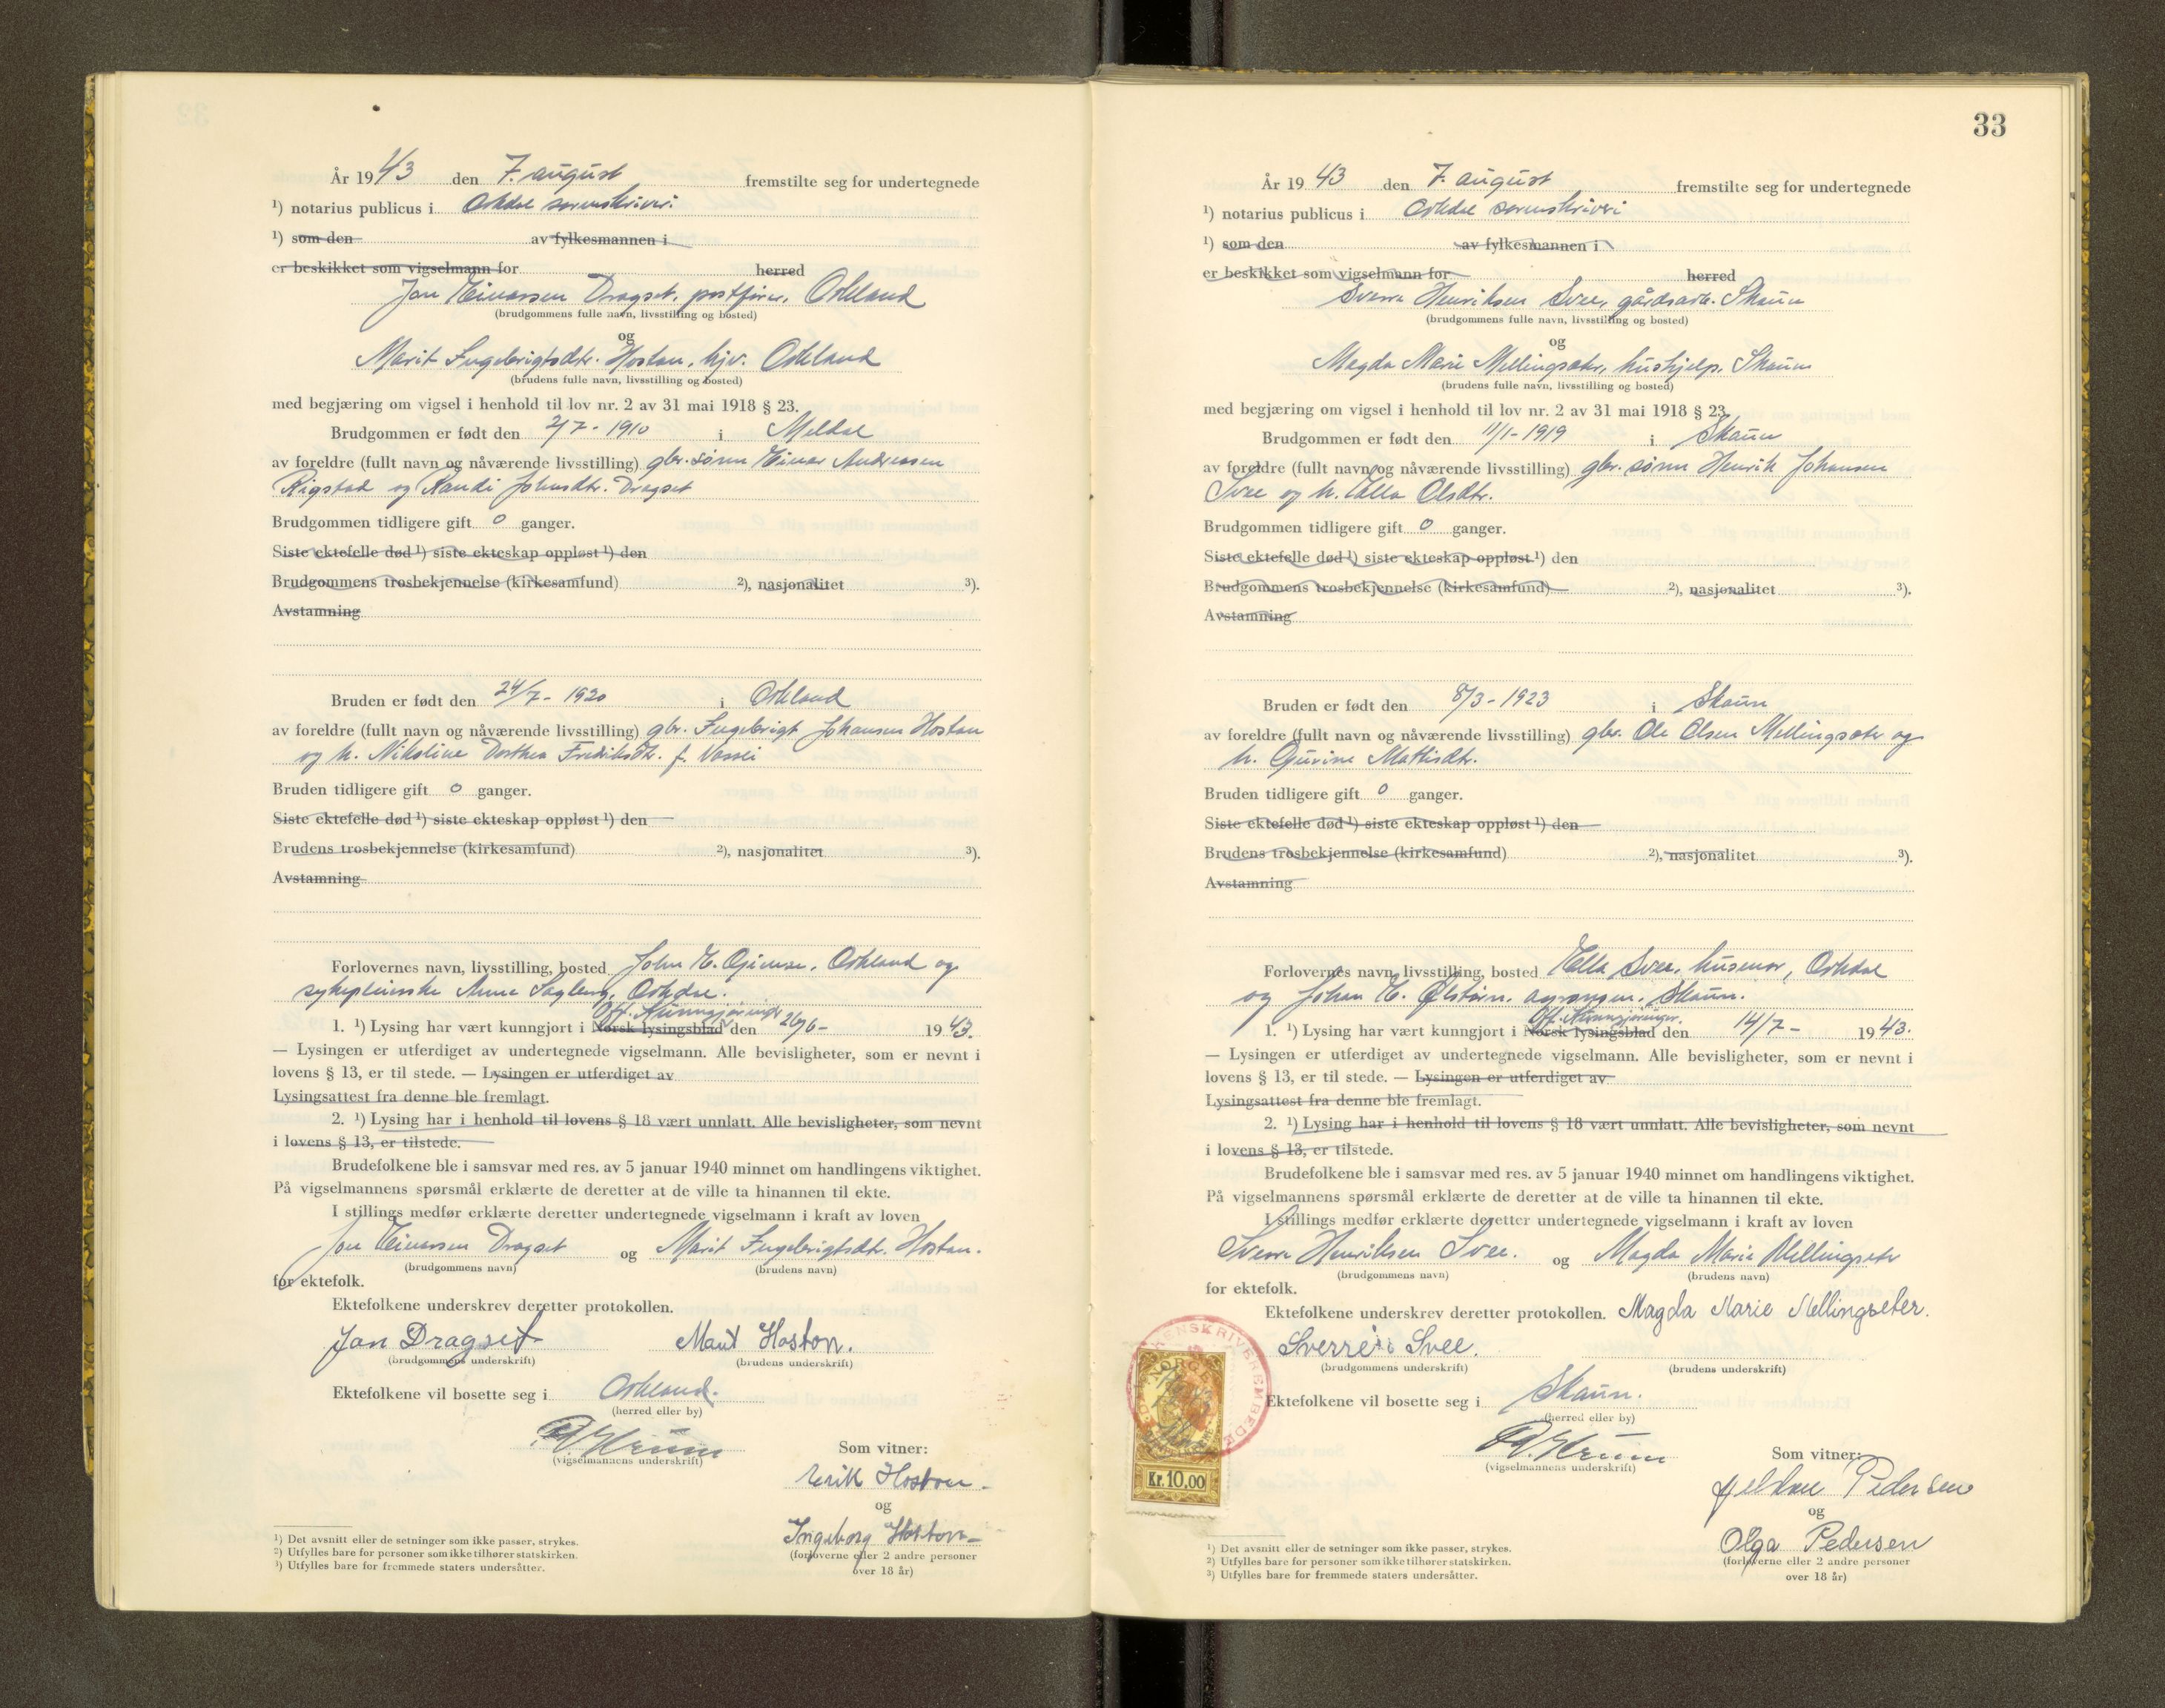 År 1943 den 7. august fremstilte seg for undertegnede
¹) notarius publicus i Orkdal sorenskriveri
¹) som den av fylkesmannen i
er beskikket som vigselmann for herred
Jon Einarsen Dragset, postfører, Orkland
(brudgommens fulle navn, livsstilling og bosted)
og
Marit Ingebrigtsdtr. Hoston, hjv. Orkland
(brudens fulle navn, livsstilling og bosted)
med begjæring om vigsel i henhold til lov nr. 2 av 31 mai 1918 § 23.
Brudgommen er født den 2/7 - 1910 i Meldal
av foreldre (fullt navn og nåværende livsstilling) gbr. sønn Einar Andreasen
Rigstad og Randi Johnsdtr. Dragset
Brudgommen tidligere gift 0 ganger.
Siste ektefelle død ¹) siste ekteskap oppløst ¹) den
Brudgommens trosbekjennelse (kirkesamfund) ²), nasjonalitet ³).
Avstamning
Bruden er født den 24/7 - 1920 i Orkland
av foreldre (fullt navn og nåværende livsstilling) gbr. Ingebrigt Johansen Hoston
og h. Nikoline Dorthea Frederiksdtr. f.
Bruden tidligere gift 0 ganger.
Siste ektefelle død ¹) siste ekteskap oppløst ¹) den
Brudens trosbekjennelse (kirkesamfund) ²), nasjonalitet ³).
Avstamning
Forlovernes navn, livsstilling, bosted John E. Gjemse, Orkland og
sykepleierske Anne Sagberg, Orkdal.
Off. Kunngjøringer
1. ¹) Lysing har vært kunngjort i Norsk lysingsblad den 26/6 - 1943.
— Lysingen er utferdiget av undertegnede vigselmann. Alle bevisligheter, som er nevnt i
lovens § 13, er til stede. — Lysingen er utferdiget av
Lysingsattest fra denne ble fremlagt.
2. ¹) Lysing har i henhold til lovens § 18 vært unnlatt. Alle bevisligheter, som nevnt
i lovens § 13, er tilstede.
Brudefolkene ble i samsvar med res. av 5 januar 1940 minnet om handlingens viktighet.
På vigselmannens spørsmål erklærte de deretter at de ville ta hinannen til ekte.
I stillings medfør erklærte deretter undertegnede vigselmann i kraft av loven
Jon Einarsen Dragset og Marit Ingebrigtsdtr. Hoston.
(brudgommens navn) (brudens navn)
for ektefolk.
Ektefolkene underskrev deretter protokollen.
Jon Dragset Marit Hoston.
(brudgommens underskrift) (brudens underskrift)
Ektefolkene vil bosette seg i Orkland.
(herred eller by)
(vigselmannens underskrift)
Som vitner:
Eirik Hoston
og
Ingeborg Hoston
(forloverne eller 2 andre personer
over 18 år)
¹) Det avsnitt eller de setninger som ikke passer, strykes.
²) Utfylles bare for personer som ikke tilhører statskirken.
³) Utfylles bare for fremmede staters undersåtter.
33
År 1943 den 7. august fremstilte seg for undertegnede
¹) notarius publicus i Orkdal sorenskriveri
¹) som den av fylkesmannen i
er beskikket som vigselmann for herred
Sverre Henriksen Svee, gårdsarb. Skaun
(brudgommens fulle navn, livsstilling og bosted)
og
Magda Marie Mellingsæter, hushjelp, Skaun
(brudens fulle navn, livsstilling og bosted)
med begjæring om vigsel i henhold til lov nr. 2 av 31 mai 1918 § 23.
Brudgommen er født den 11/1 - 1919 i Skaun
av foreldre (fullt navn og nåværende livsstilling) gbr. sønn Henrik Johansen
Svee og h. Ella Olsdtr.
Brudgommen tidligere gift 0 ganger.
Siste ektefelle død ¹) siste ekteskap oppløst ¹) den
Brudgommens trosbekjennelse (kirkesamfund) ²), nasjonalitet ³).
Avstamning
Bruden er født den 8/3 - 1923 i Skaun
av foreldre (fullt navn og nåværende livsstilling) gbr. Ole Olsen Mellingsæter og
h. Gurine Mattisdtr.
Bruden tidligere gift 0 ganger.
Siste ektefelle død ¹) siste ekteskap oppløst ¹) den
Brudens trosbekjennelse (kirkesamfund) ²), nasjonalitet ³).
Avstamning
Forlovernes navn, livsstilling, bosted Ella Svee, husmor, Orkdal
og Johan E. Skaun.
Off. Kunngjøringer.
1. ¹) Lysing har vært kunngjort i Norsk lysingsblad den 14/7 - 1943.
— Lysingen er utferdiget av undertegnede vigselmann. Alle bevisligheter, som er nevnt i
lovens § 13, er til stede. — Lysingen er utferdiget av
Lysingsattest fra denne ble fremlagt.
2. ¹) Lysing har i henhold til lovens § 18 vært unnlatt. Alle bevisligheter, som nevnt
i lovens § 13, er tilstede.
Brudefolkene ble i samsvar med res. av 5 januar 1940 minnet om handlingens viktighet.
På vigselmannens spørsmål erklærte de deretter at de ville ta hinannen til ekte.
I stillings medfør erklærte deretter undertegnede vigselmann i kraft av loven
Sverre Henriksen Svee. og Magda Marie Mellingsæter
(brudgommens navn) (brudens navn)
for ektefolk.
Ektefolkene underskrev deretter protokollen. Magda Marie Mellingseter.
Sverre Svee.
(brudgommens underskrift) (brudens underskrift)
NORGE
Kr. 10.00
Ektefolkene vil bosette seg i Skaun.
(herred eller by)
(vigselmannens underskrift)
Som vitner:
Pedersen
og
Olga Pedersen
(forloverne eller 2 andre personer
over 18 år)
¹) Det avsnitt eller de setninger som ikke passer, strykes.
²) Utfylles bare for personer som ikke tilhører statskirken.
³) Utfylles bare for fremmede staters undersåtter.